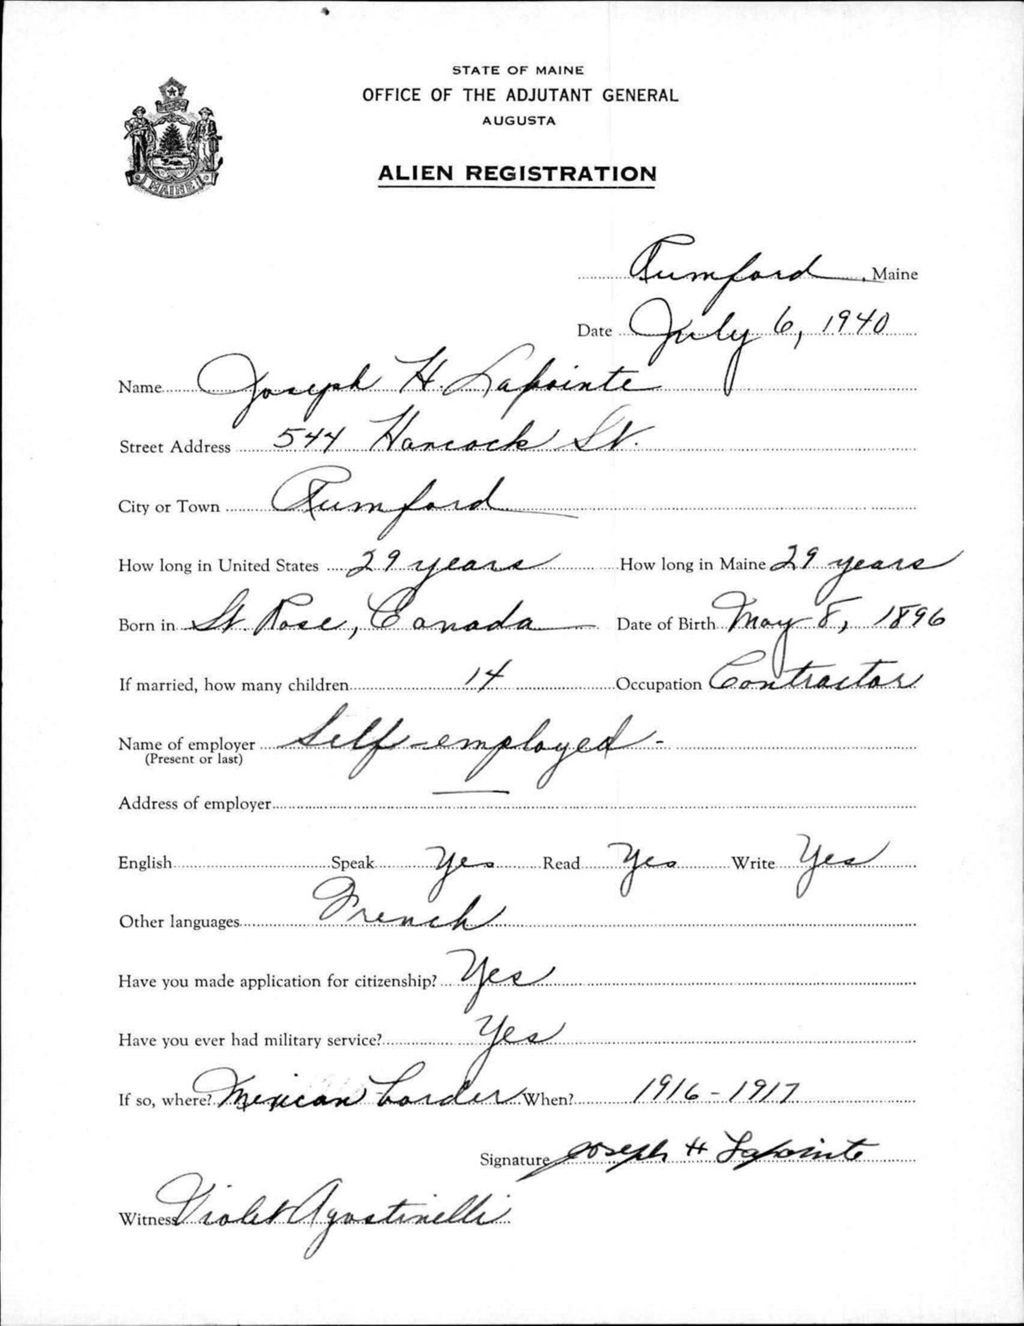 STATE OF MAINE
OFFICE OF THE ADJUTANT GENERAL
AUGUSTA
MAINE
ALIEN REGISTRATION
Rumford, Maine
Date July 6, 1940
Name Joseph H. Lapointe
Street Address 544 Hancock St.
City or Town Rumford
How long in United States 29 years How long in Maine 29 years
Born in St. Rose, Canada Date of Birth May 8, 1896
If married, how many children 14 Occupation Contractor
Name of employer Self-employed-
(Present or last)
Address of employer
English Speak Yes Read Yes Write Yes
Other languages French
Have you made application for citizenship? Yes
Have you ever had military service? Yes
If so, where? Mexican border When? 1916-1917
Signature Joseph H Lapointe
Witness Violet Agostinelli